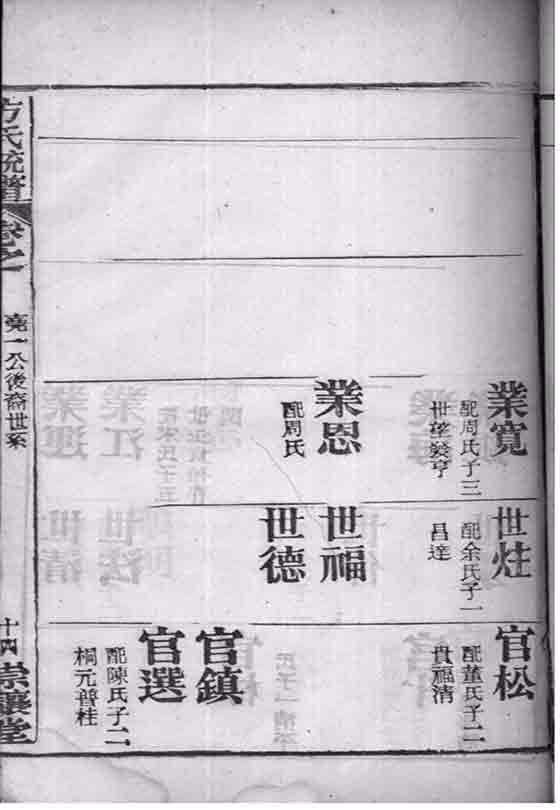 業寬
配周氏子三
發亨
業恩
配周氏
世炷
配余氏子一
昌達
世福
世德
官松
配董氏子二
貴福清
官鎮
官選
配陳氏子二
桐元普桂
方氏統譜
卷之
一公後裔世系
十四
崇讓堂